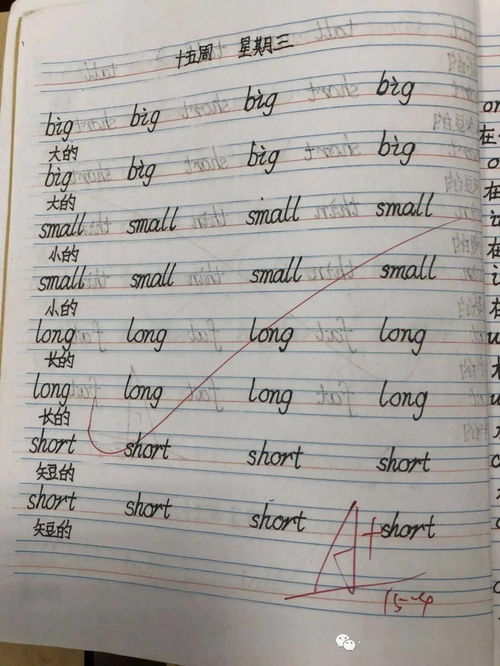 十五周 星期三
big big big big
大的
big big big big
大的
small small small small
小的
small small small small
小的
long long long long
长的
long long long long
长的
short short short short
短的
short short short short
短的
A+
15-4